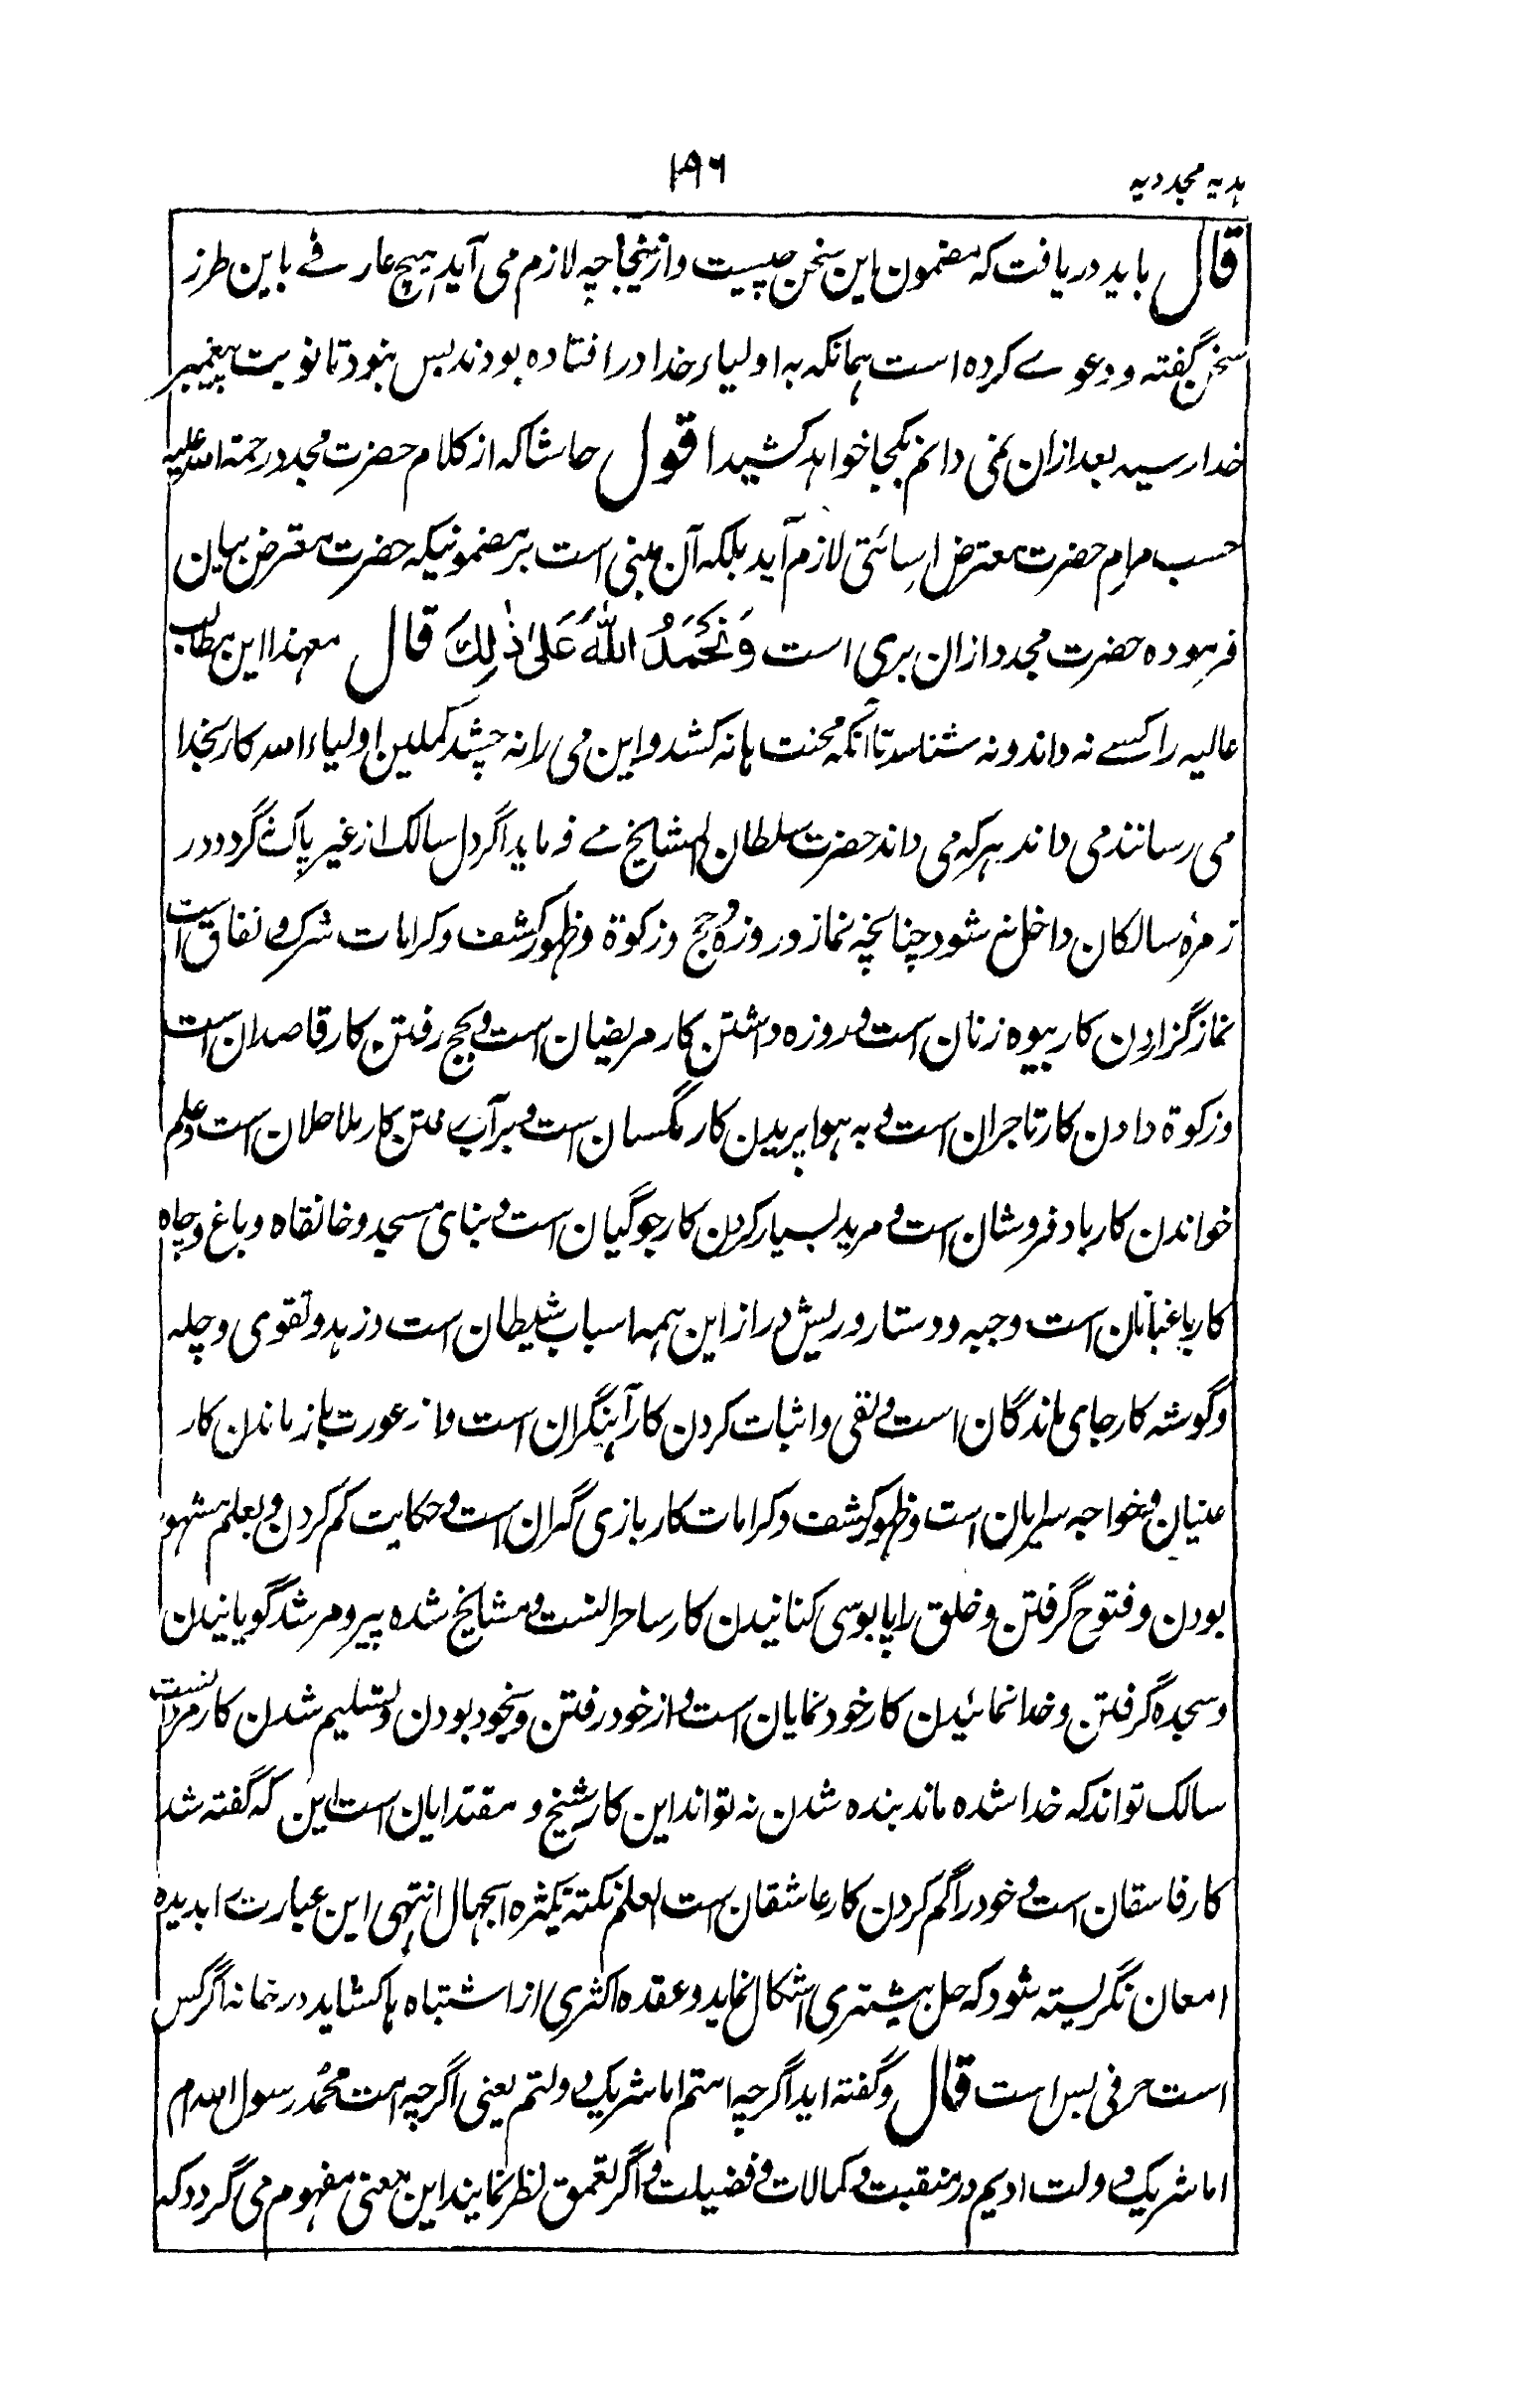 ہدیہ مجددیہ
۱۹۶
قال باید دریافت کہ مضمون این سخن چیست و ازینجا چہ لازم می آید ہیچ عارفے باین طرز
سخن گفتہ و دعوے کردہ است ہمانکہ بہ اولیاء خدا در افتادہ بودند بس نبود تا نوبت بپیغمبر
خدا رسید بعد ازان نمی دانم بکجا خواہد کشید اقول حاشا کہ از کلام حضرت مجدد رحمۃ اللہ علیہ
حسب مرام حضرت معترض اسائتی لازم آید بلکہ آن مبنی است بر مضمونیکہ حضرت معترض بیان
فرمودہ حضرت مجدد ازان بری است وَنَحْمَدُ اللّٰهَ عَلیٰ ذٰلِكَ قال معہذا این مطالب
عالیہ را کسے نہ داند و نہ شناسد تا آنکہ محنت ہا نہ کشد و این می را نہ چشد کملین اولیاء اللہ کار بخدا
می رسانند می داند ہر کہ می داند حضرت سلطان المشایخ مے فرماید اگر دل سالک از غیر پاک نگردد در
زمرۂ سالکان داخل نہ شود چنانچہ نماز و روزہ و حج و زکوۃ و ظہور کشف و کرامات شرک و نفاق است
نماز گزاردن کار بیوہ زنان است و روزہ داشتن کار مریضان است و بحج رفتن کار قاصدان است
و زکوۃ دادن کار تاجران است و بہ ہوا پریدن کار مگسان است و بر آب رفتن کار ملاحان است و علم
خواندن کار باد فروشان است و مرید بسیار کردن کار جوگیان است و بنای مسجد و خانقاہ و باغ و چاہ
کار باغبانان است و جبہ و دستار و ریش دراز این ہمہ اسباب شیطان است و زہد و تقوی و چلہ
و گوشہ کار جای ماندگان است و نفی و اثبات کردن کار آہنگران است و از عورت باز ماندن کار
عنینان و خواجہ سرایان است و ظہور کشف و کرامات کار بازی گران است و حکایت کم کردن و بعلم مشہور
بودن و فتوح گرفتن و خلق را پا بوسی کنانیدن کار ساحرانست و مشایخ شدہ پیر و مرشد گویانیدن
و سجدہ گرفتن و خدا نمائیدن کار خود نمایان است و از خود رفتن و بیخود بودن و تسلیم شدن کار مردانست
سالک تواند کہ خدا شدہ ماند بندہ شدن نہ تواند این کار شیخ و مقتدایان است این کہ گفتہ شد
کار فاسقان است و خود را گم کردن کار عاشقان است العلم نکتۃ یکثرہ الجہال انتہی این عبارت را بدیدہ
امعان نگریستہ شود کہ حل بیشتری اشکال نماید و عقدہ اکثری از اشتباہ ہا کشاید در خانہ اگر کس
است حرفی بس است قال و گفتہ اید اگرچہ امتم اما شریک دولتم یعنی اگرچہ امت محمد رسول اللہ ام
اما شریک دولت اویم در منقبت و کمالات و فضیلت و اگر بتعمق نظر نمایند این معنی مفہوم می گردد کہ